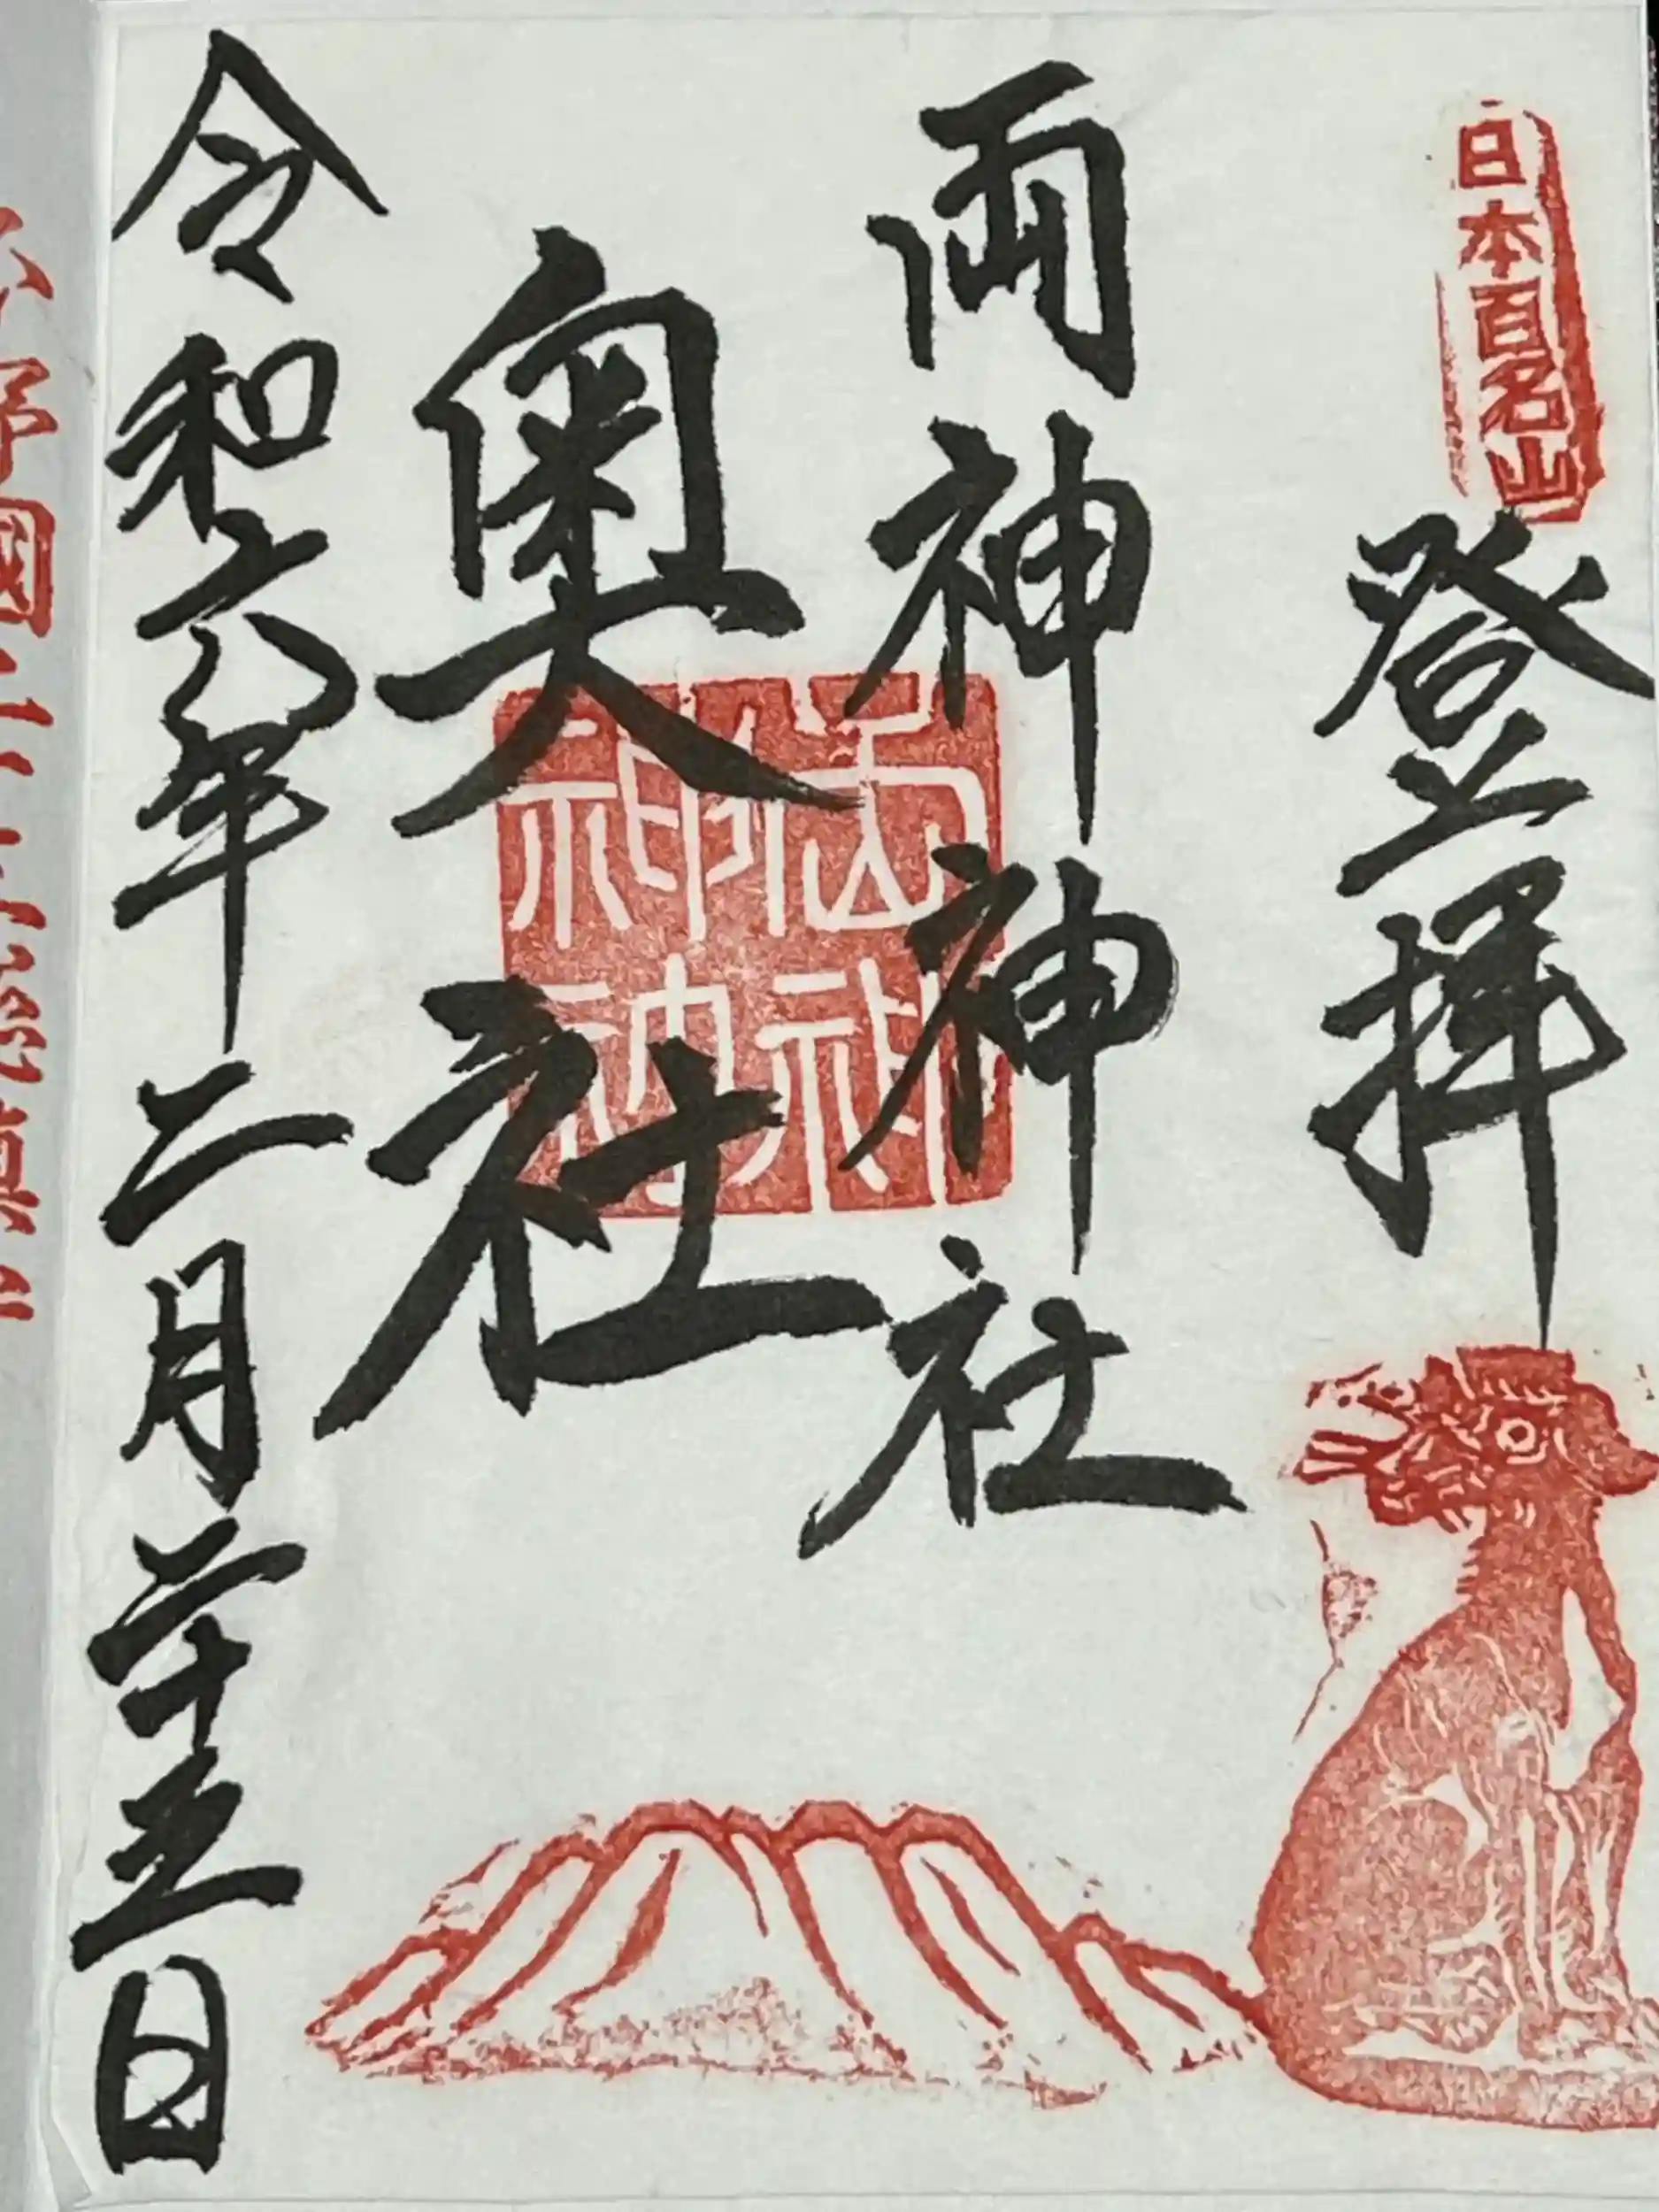 日本百名山
登拝
両神神社
奥社
令和六年二月二十三日